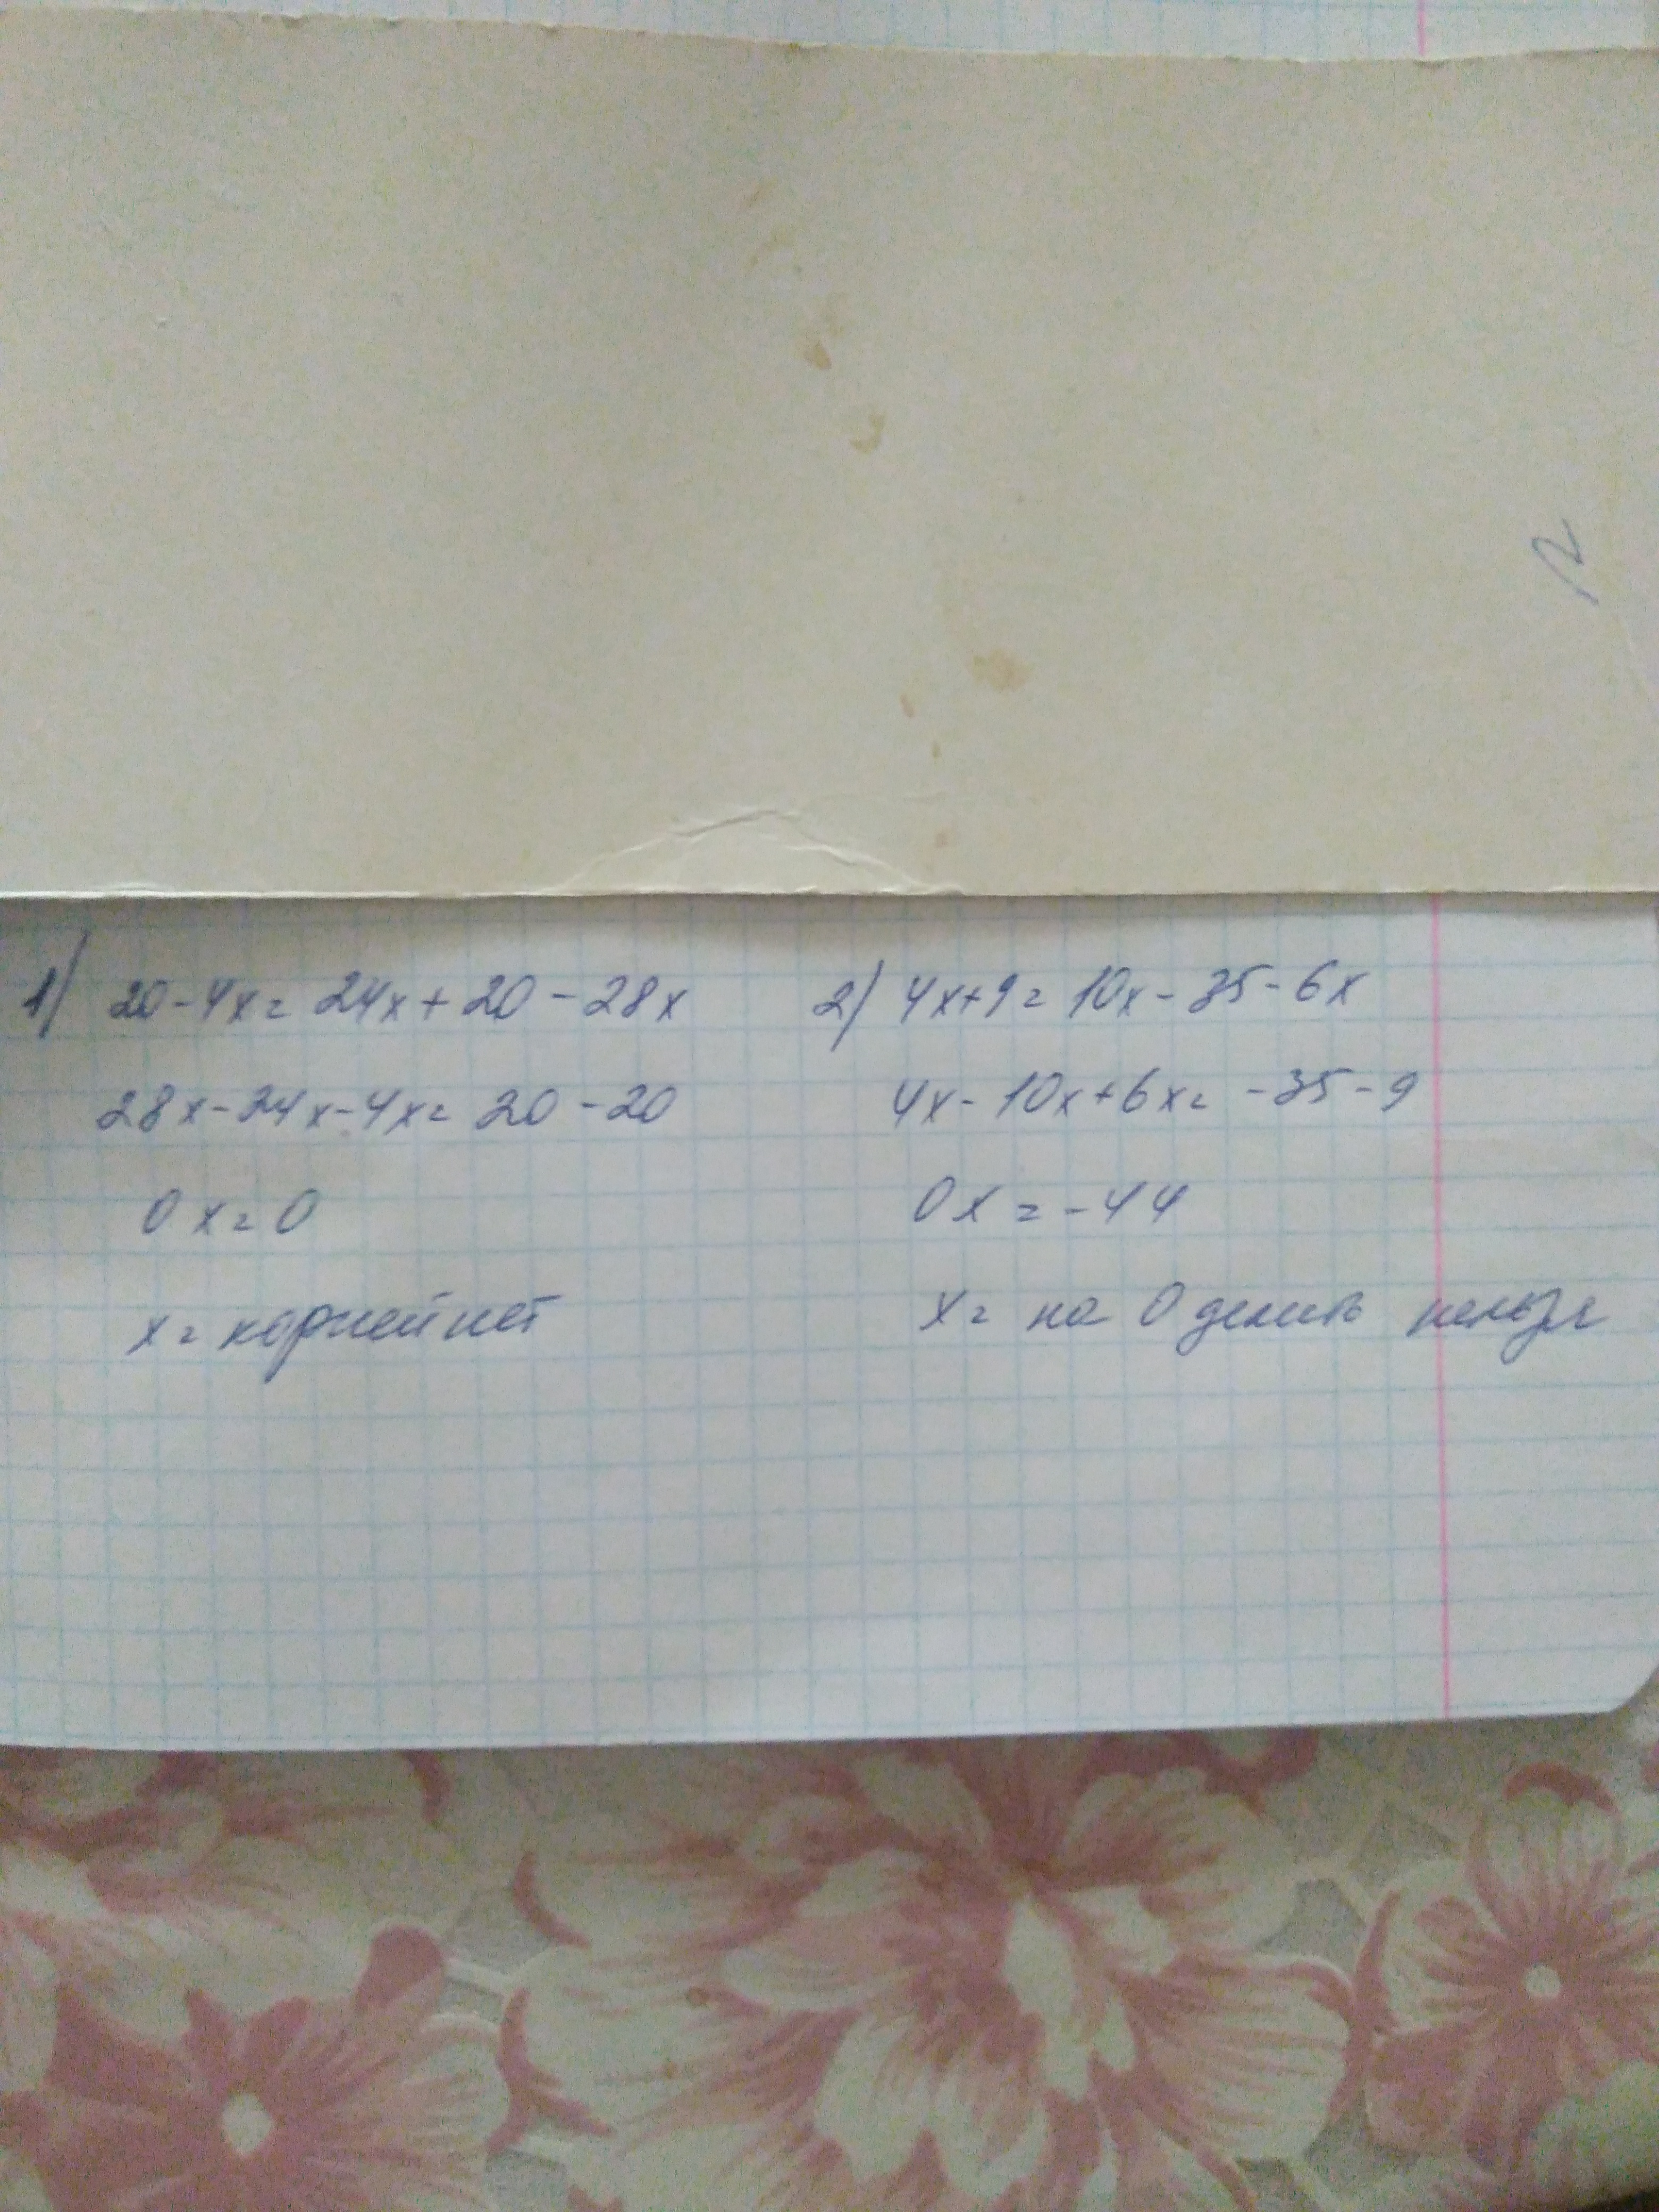 1) 20-4x=24x+20-28x
28x-24x-4x=20-20
0x=0
x=корней нет
2) 4x+9=10x-35-6x
4x-10x+6x=-35-9
0x=-44
x= на 0 делить нельзя